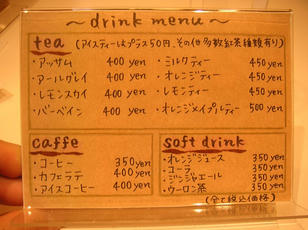 ～drink menu～
tea (アイスティーはプラス50円、その他多数紅茶種類有り)
・アッサム 400 yen ・ミルクティー 450yen
・アールグレイ 400 yen ・オレンジティー 450yen
・レモンスカイ 400 yen ・レモンティー 450yen
・バーベイン 400 yen ・オレンジメイプルティー 500 yen
caffe
・コーヒー 350yen
・カフェラテ 400yen
・アイスコーヒー 400yen
soft drink
・オレンジジュース 350 yen
・コーラ 350 yen
・ジンジャエール 350 yen
・ウーロン茶 350 yen
(全て税込価格)